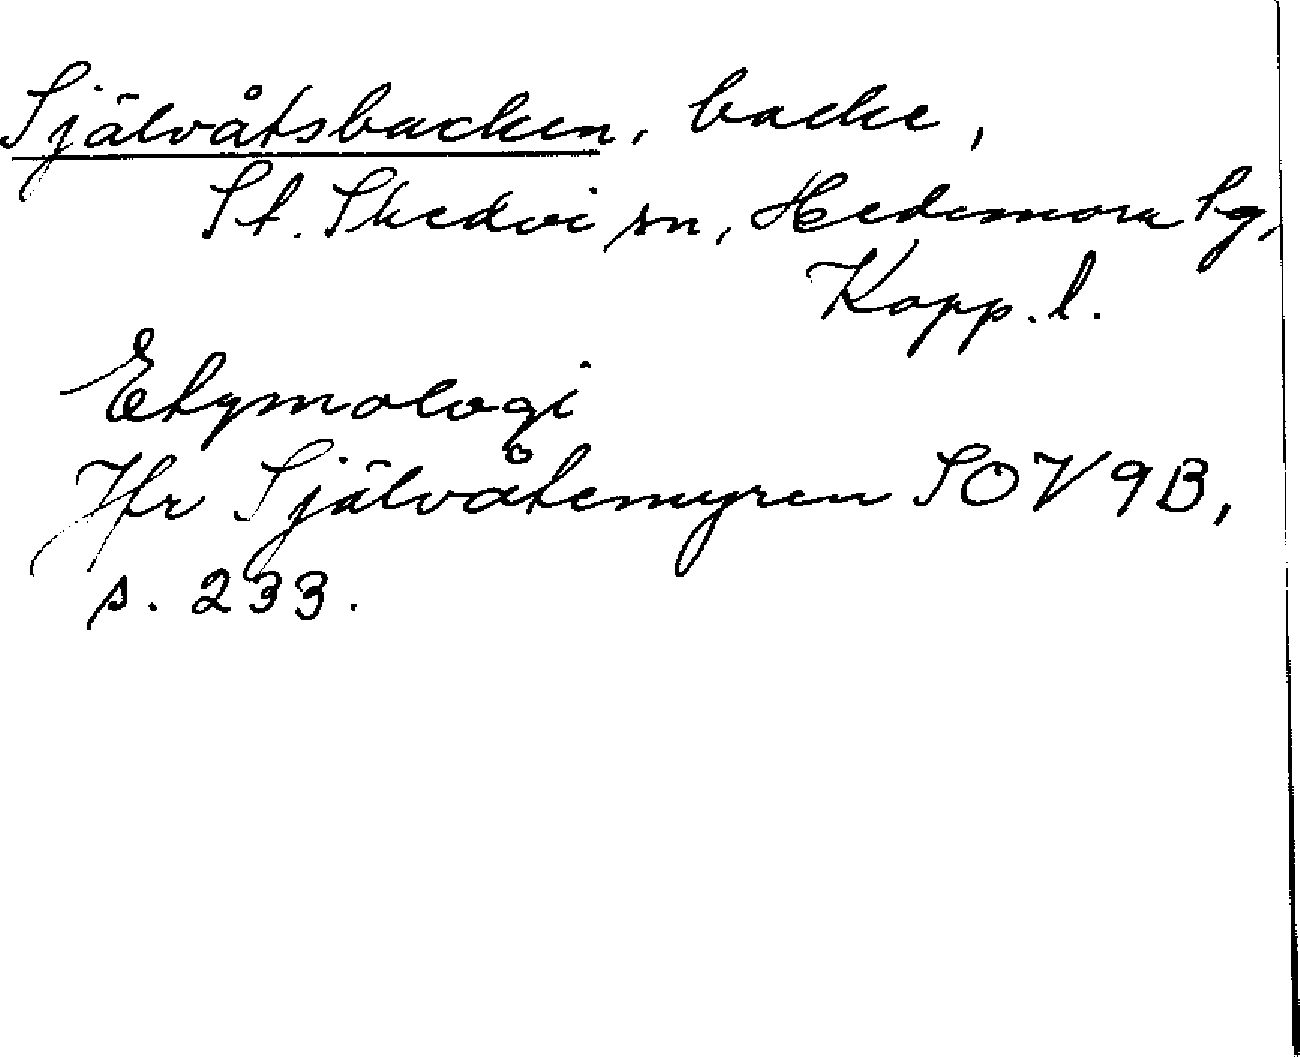 Självåtsbacken, backe,
St. Skedvi sn, Hedemora tg,
Kopp. l.
Etymologi
Jfr Självåtemyren SOV 9B,
s. 233.